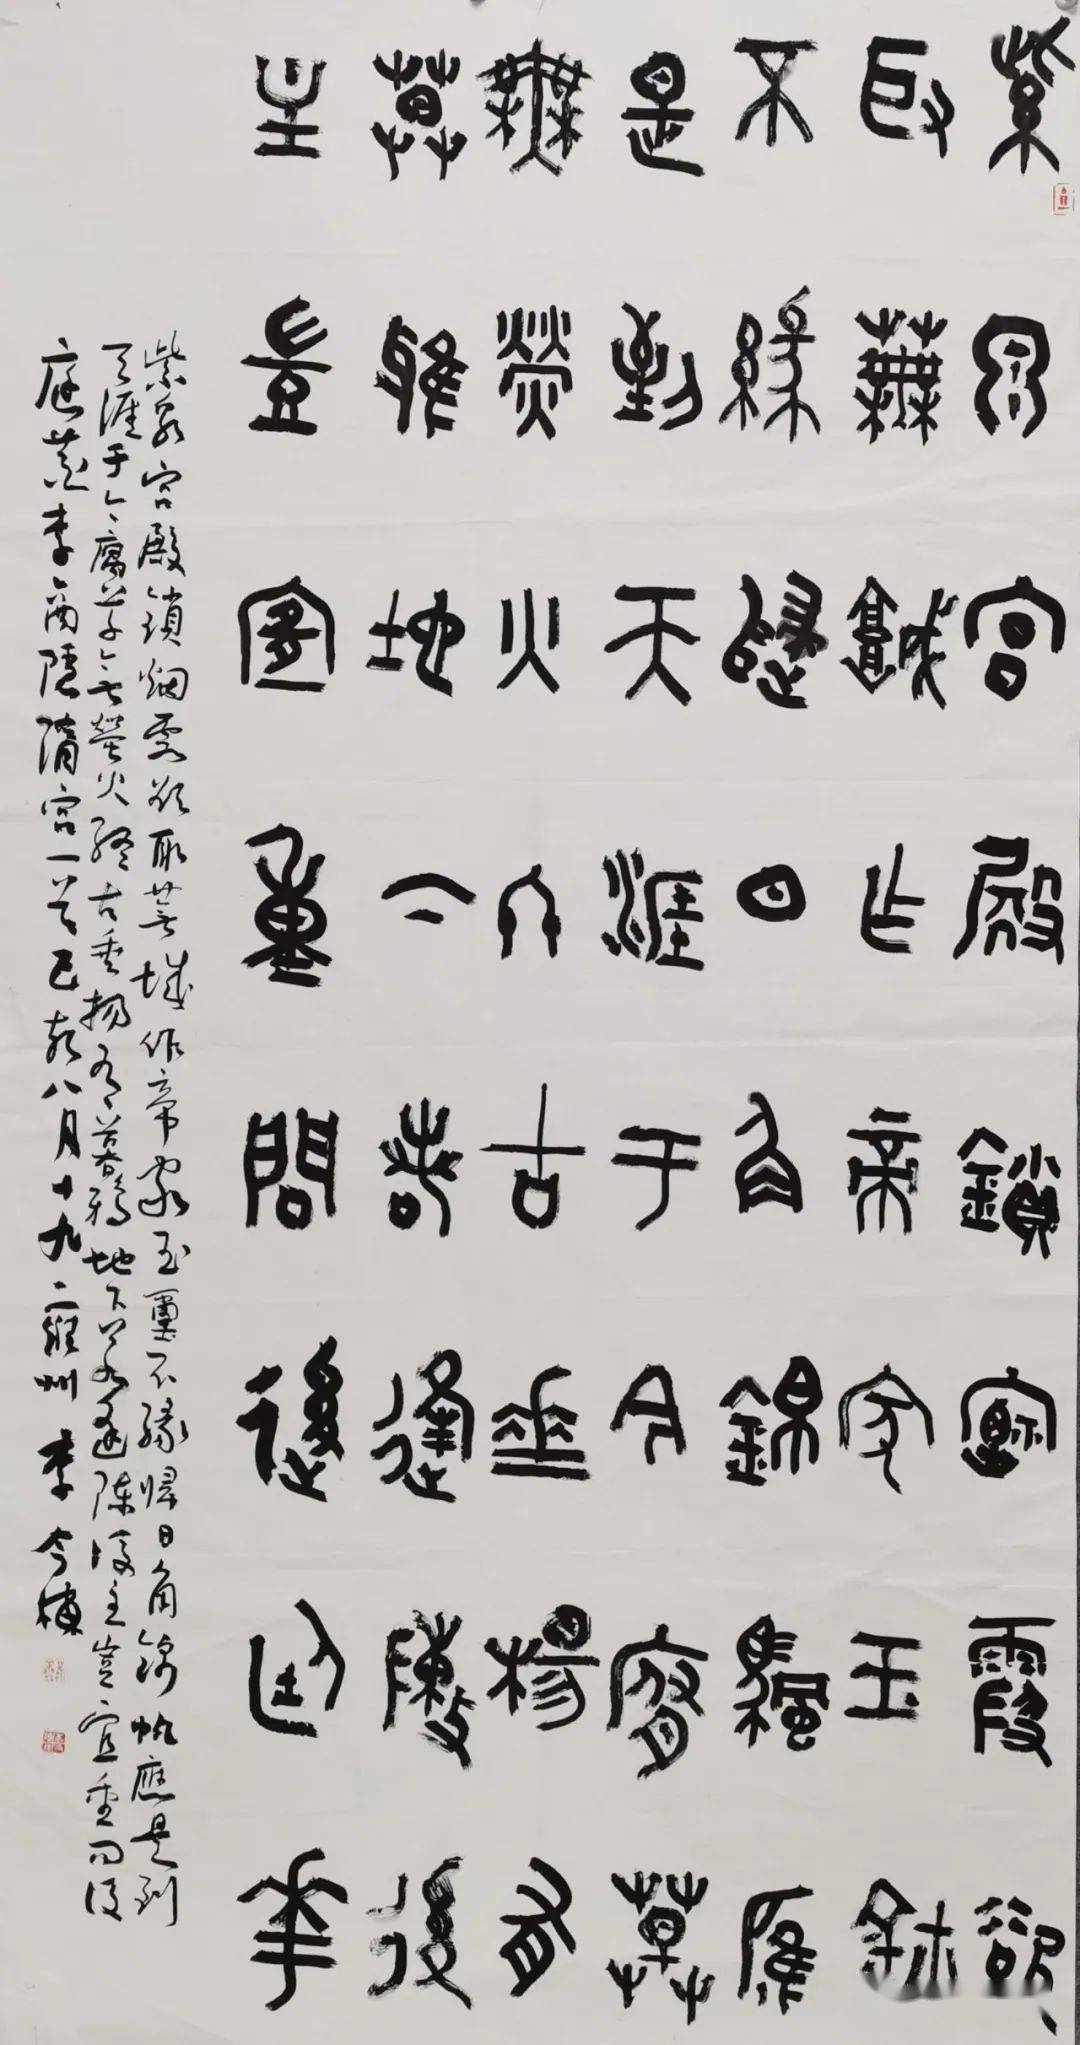 紫泉宮殿鎖煙霞欲
取蕪城作帝家玉鉨
不緣歸日角錦帆應
是到天涯于今腐草
無螢火終古垂楊有
暮鴉地下若逢陳後
主豈宜重問後庭花
紫泉宮殿鎖烟霞欲取蕪城作帝家玉璽不緣歸日角錦帆應是到
天涯于今腐草無螢火終古垂楊有暮鴉地下若逢陳後主豈宜重問後
庭花李商隱隋宮一首己亥八月十九雍州李棟